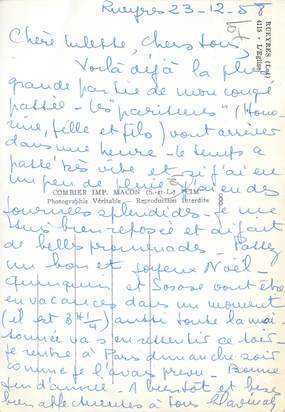 Rueyres 23-12-58
RUEYRES (Lot)
4115 - L'Eglise
Chère Mlette, chers tous
Voilà déjà la plus
grande partie de mon congé
passée - les "parisiens" (Mon-
sieur, fille et fils) vont arriver
dans une heure - le temps a
passé très vite et si j'ai eu
un peu de pluie j'ai eu des
COMBIER IMP. MACON (S.-et-L.) "CIM"
Photographie Véritable - Reproduction Interdite
journées splendides - je me
suis bien reposée et ai fait
de belles promenades - Passez
un bon et joyeux Noël -
et Sosose vont être
en vacances dans un moment
(il est 3H 1/4) aussi toute la mai-
sonnée va s'en ressentir ce soir -
je rentre à Paris dimanche soir
comme je l'avais prévu - Bonne
fin d'année - A bientôt et bises
bien affectueuses à tous